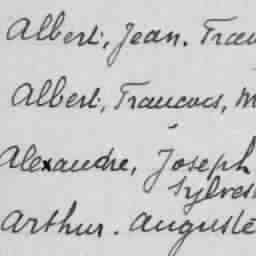 Albert, Jean. Fran
Albert, Francois, M
Alexandre, Joseph
Sylves
Arthur. Auguste